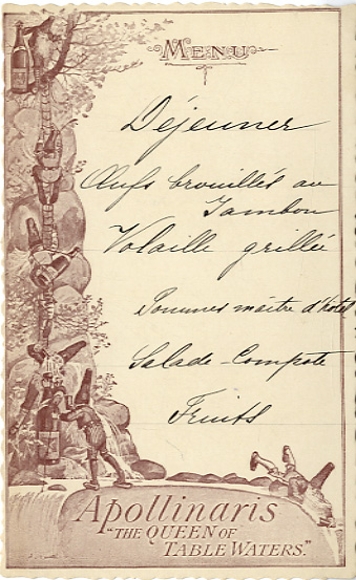 MENU
Déjeuner
Œufs brouillés au
Jambon
Volaille grillée
Pommes maître d'hôtel
Salade - Compote
Fruits
Apollinaris
"THE QUEEN OF
TABLE WATERS."